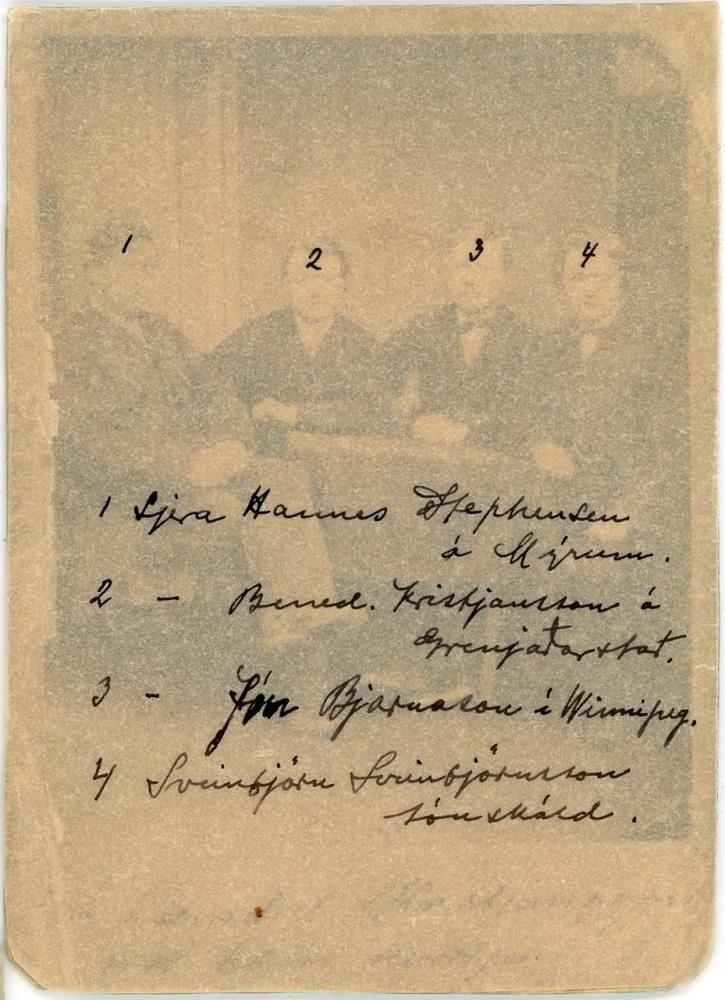 1 2 3 4
1 Sjera Hannes Stephensen
á Mýrum.
2 - Bened. Kristjansson á
Grenjaðarstað.
3 - Jón Bjarnason í Winnipeg.
4 Sveinbjörn Sveinbjörnsson
tónskáld.